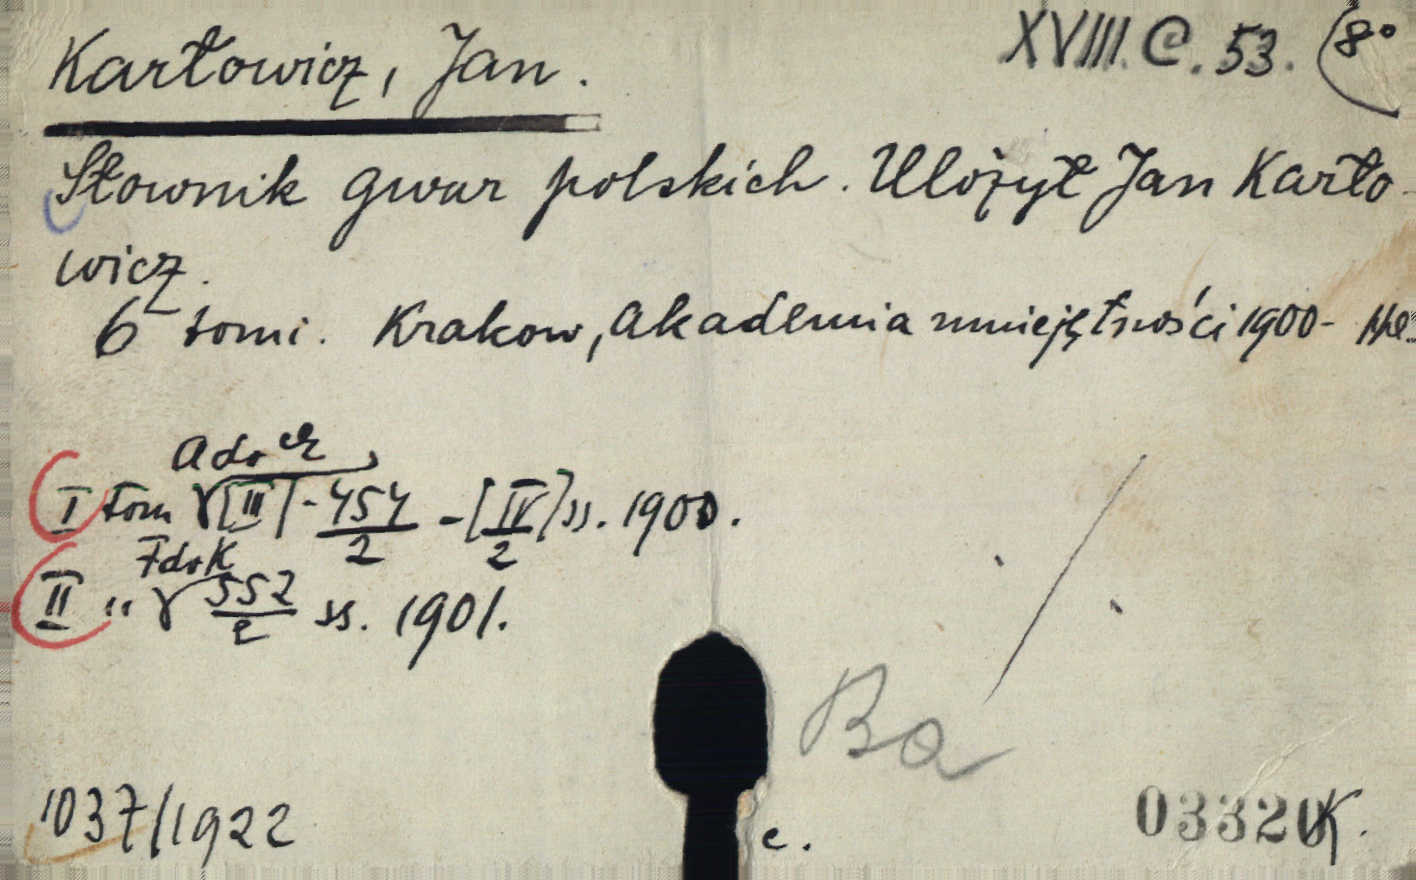 Karłowicz, Jan.
XVIII. C. 53. (8°
Słownik gwar polskich. Ulożył Jan Karło-
wicz.
6 tomi. Krakow, Akademia umiejętności 1900-
A do Ch
I tom [III] - 454/2 - [IV]/2 ss. 1900.
F do K
II " 552/2 ss. 1901.
Ba
1037/1922
c.
03320 K.